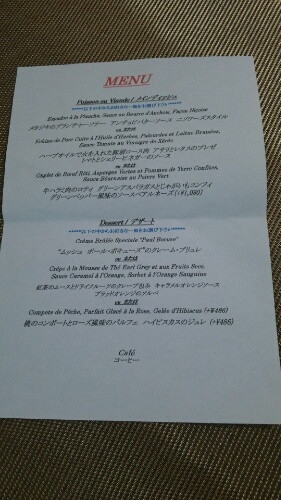 MENU
Poisson ou Viande / メインディッシュ
*****以下の中からお好きな一皿をお選び下さい*****
Espadon à la Plancha, Sauce au Beurre d'Anchois, Façon Niçoise
メカジキのプランチャ・ソテー アンチョビバターソース ニソワーズスタイル
ou または
Echine de Porc Cuite à l'Huile d'Herbes, Palourdes et Laitue Braisées,
Sauce Tomate au Vinaigre de Xérès
ハーブオイルで火を入れた豚肩ロース肉 アサリとレタスのブレゼ
トマトとシェリービネガーのソース
ou または
Onglet de Boeuf Rôti, Asperges Vertes et Pommes de Terre Confites,
Sauce Béarnaise au Poivre Vert
牛ハラミ肉のロティ グリーンアスパラガスとじゃがいもコンフィ
グリーンペッパー風味のソースベアルネーズ
Dessert / デザート
*****以下の中からお好きな一皿をお選び下さい*****
Crème Brûlée Speciale "Paul Bocuse"
"ムッシュ ポール・ボキューズ"のクレーム・ブリュレ
ou または
Crêpe à la Mousse de Thé Earl Grey et aux Fruits Secs,
Sauce Caramel à l'Orange, Sorbet à l'Orange Sanguine
紅茶のムースとドライフルーツのクレープ包み キャラメルオレンジソース
ブラッドオレンジのソルベ
ou または
Compote de Pêche, Parfait Glacé à la Rose, Gelée d'Hibiscus (+¥486)
桃のコンポートとローズ風味のパルフェ ハイビスカスのジュレ (+¥486)
Café
コーヒー